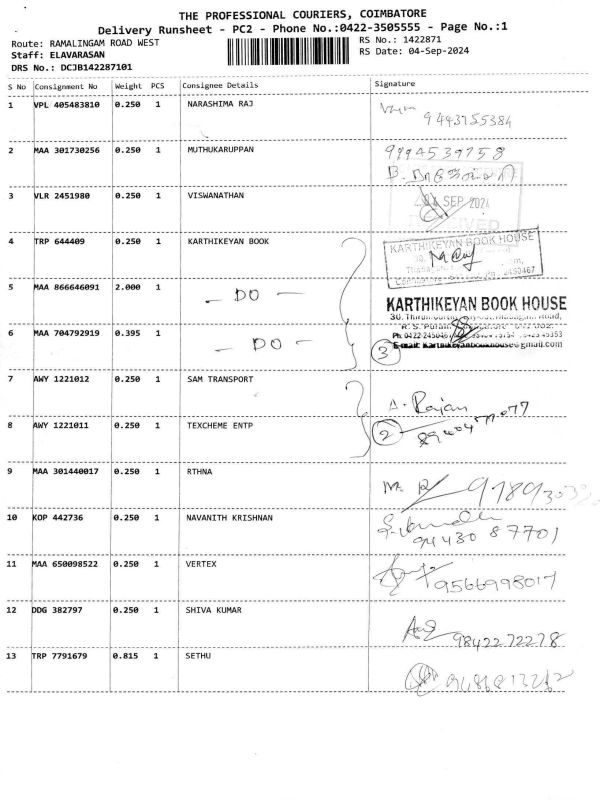 THE PROFESSIONAL COURIERS, COIMBATORE
Delivery Runsheet - PC2 - Phone No.:0422-3505555 - Page No.:1
Route: RAMALINGAM ROAD WEST
RS No.: 1422871
Staff: ELAVARASAN
RS Date: 04-Sep-2024
DRS No.: DCJB142287101
S No Consignment No Weight PCS Consignee Details Signature
1 VPL 405483810 0.250 1 NARASHIMA RAJ
9443755384
2 MAA 301730256 0.250 1 MUTHUKARUPPAN 9994539758
3 VLR 2451980 0.250 1 VISWANATHAN
SEP 2024
4 TRP 644409 0.250 1 KARTHIKEYAN BOOK
KARTHIKEYAN BOOK HOUSE
5 MAA 866646091 2.000 1 - DO -
KARTHIKEYAN BOOK HOUSE
6 MAA 704792919 0.395 1 - DO - 3
7 AWY 1221012 0.250 1 SAM TRANSPORT
A. Rajan
8 AWY 1221011 0.250 1 TEXCHEME ENTP 2
9 MAA 301440017 0.250 1 RTHNA
10 KOP 442736 0.250 1 NAVANITH KRISHNAN
94430 87701
11 MAA 650098522 0.250 1 VERTEX
9566998017
12 DDG 382797 0.250 1 SHIVA KUMAR
9842272278
13 TRP 7791679 0.815 1 SETHU